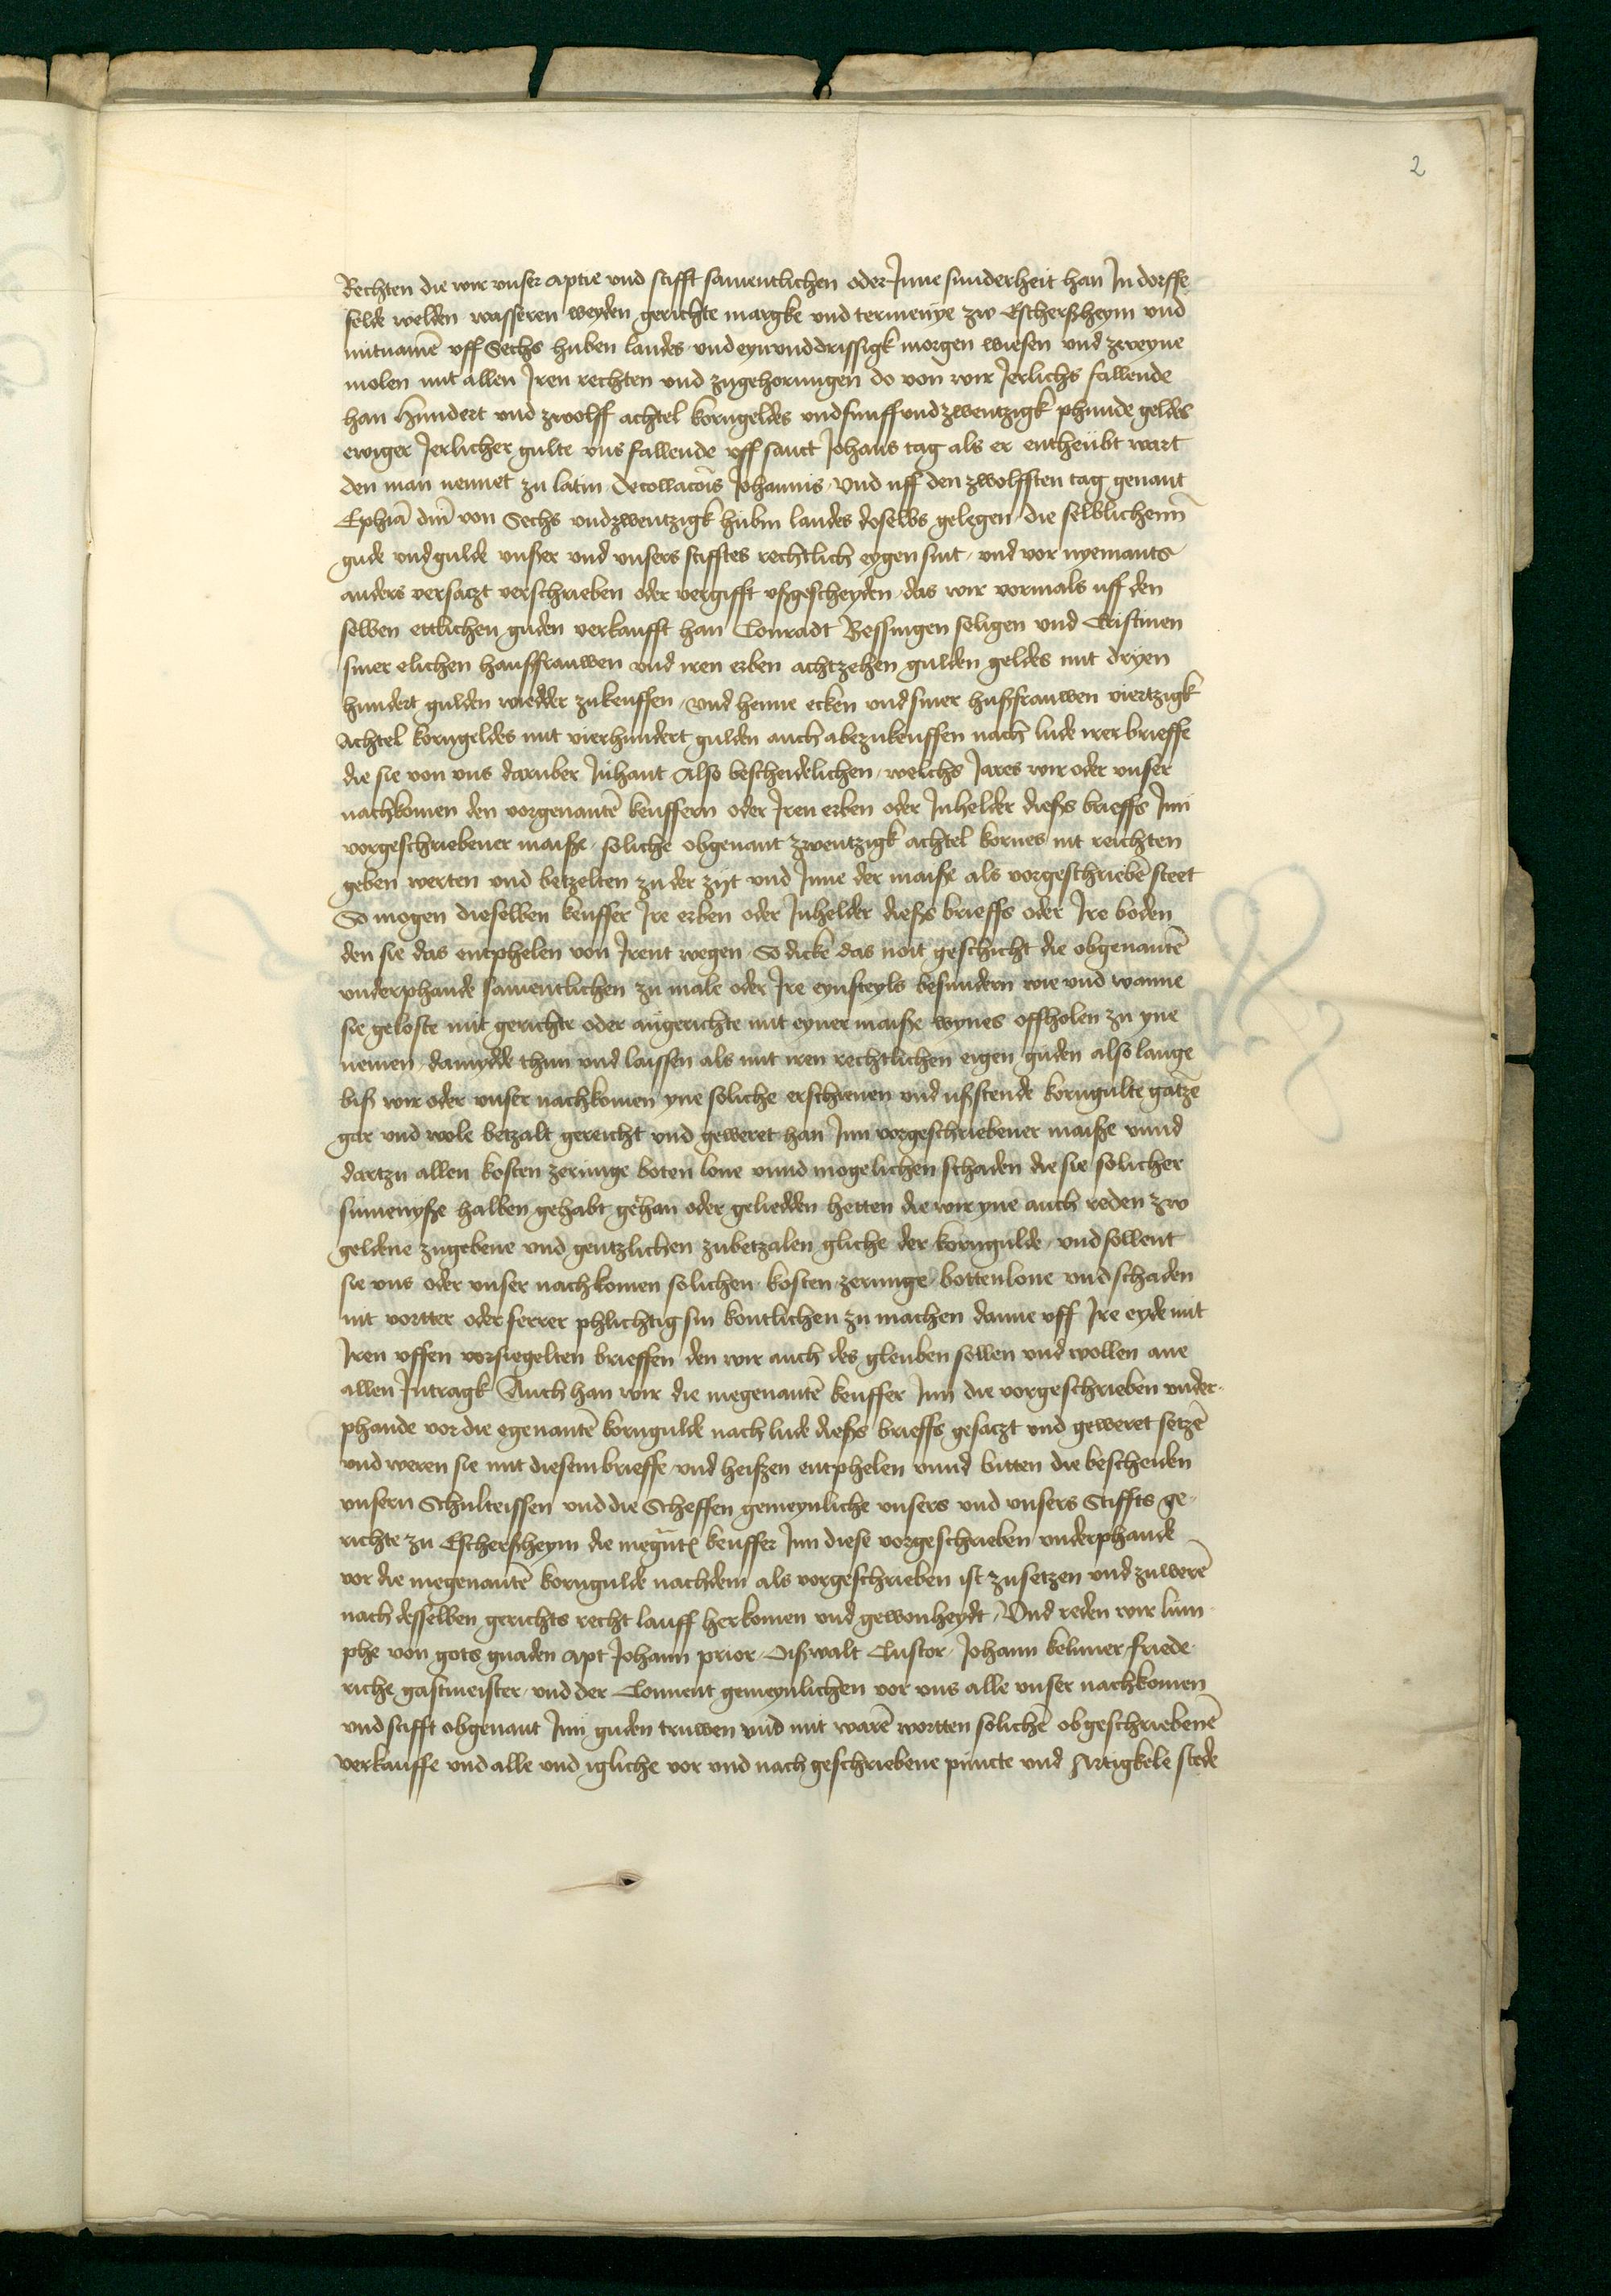 2
Rechten die wir vnser aptie vnd stifft samentlichen oder Jnne sunderheit han Jn dorffe
felde welden wasseren weyden gerichte margke vnd termenye zw Escherßheym vnd
mitnamē vff Sechs huben landes vnd eynvnddrissigk morgen wiesen vnd zweyne
molen mit allen Jren rechten vnd zugehorungen do von wir Jerlichs fallende
han hundert vnd zwolff achtel korngeldes vnd funff vnd zwentzigk phunde geldes
ewiger Jerlicher gulte vns fallende vff sanct Johans tag als er entheubt wart
den man nennet zu latin Decollacōis Johannis vnd uff den zwolfften tag genant
Ephīa dnī von Sechs vnd zwentzigk hubin landes doselbs gelegen die selblichenn
gude vnd gulde vnßer vnd vnsers stifftes rechtlich eygen sint vnd vor nyemants
anders versaczt verschrieben oder vergifft vßgescheyden das wir vormals uff den
selben ettlichen guden verkaufft han Conradt Bessingen seligen vnd Cristinen
siner elichen haußfrauwen vnd iren erben achtzehen gulden geldes mit dryen
hundert gulden wiedder zukeuffen vnd henne ecken vnd siner hußfrauwen viertzigk
Achtel korngeldes mit vierhundert gulden auch abezukeuffen nach lude irer brieffe
die sie von vns daruber Jnhant Also bescheidelichen welchs Jares wir oder vnser
nachkomen den vorgenantē keuffern oder Jren erben oder Jnhelder dießs brieffs Jnn
vorgeschriebener maiße soliche obgenant zwentzigk achtel kornes nit reichten
geben werten vnd betzelten zu der zijt vnd Jnne der maiße als vorgeschriebē steet
So mogen dieselben keuffer Jre erben oder Jnhelder dießs brieffs oder Jre boden
den sie das entphelen von Jrent wegen So dicke das noit geschicht die obgenantē
vnderphande samentlichen zu male oder Jre eynsteyls besundern wie vnd wanne
sie geloste mit gerichte oder angerichte mit eyner maiße wynes offholen zu yne
nemen damydde thun vnd laissen als mit iren rechtlichen eigen guden also lange
biß wir oder vnser nachkomen yne soliche erschienen vnd ußstende korngulte gatzē
gar vnd wole betzalt gereicht vnd geweret han Jnn vorgeschriebener maiße vnnd
dartzu allen kosten zerunge boten lone vnnd mogelichen schaden die sie solicher
sumenyße halben gehabt gehan oder geliedden hetten die wir yne auch reden zw
geldene zugebene vnd gentzlichen zubetzalen gliche der korngulde vnd sollent
sie vns oder vnser nachkomen solichen kosten zerunge bottenlone vnd schaden
nit vortter oder ferrer phlichtig sin kontlichen zu machen danne vff Jre eyde mit
Jren vffen vorsiegelten brieffen den wir auch des gleuben sollen vnd wollen ane
allen Jntragk Auch han wir die megenantē keuffer Jnn die vorgeschrieben vnder-
phande vor die egenantē korngulde nach lude dießs brieffs gesaczt vnd geweret setzē
vnd weren sie mit diesem brieffe vnd heißen entphelen vnnd bitten die bescheiden
vnsern Schulteissen vnd die Scheffen gemeynliche vnsers vnd vnsers Stiffts ge-
richte zu Escherßheym die megnt̄ keuffer Jnn diese vorgeschrieben vnderphande
vor die megenantē korngulde nachdem als vorgeschrieben ist zu setzen vnd zuwerē
nach desselben gerichts recht lauff herkomen vnd gewonheydt Vnd reden wir lum
phe von gots gnaden apt Johann prior Oißwalt Custor Johann kelnner friede
riche gastmeister vnd der Conuent gemeynlichen vor vns alle vnser nachkomen
vnd stifft obgenant Jnn guden truwen vnd mit warē wortten solichē obgeschriebenē
verkauffe vnd alle vnd igliche vor vnd nach geschriebene puncte vnd Artigkele stede